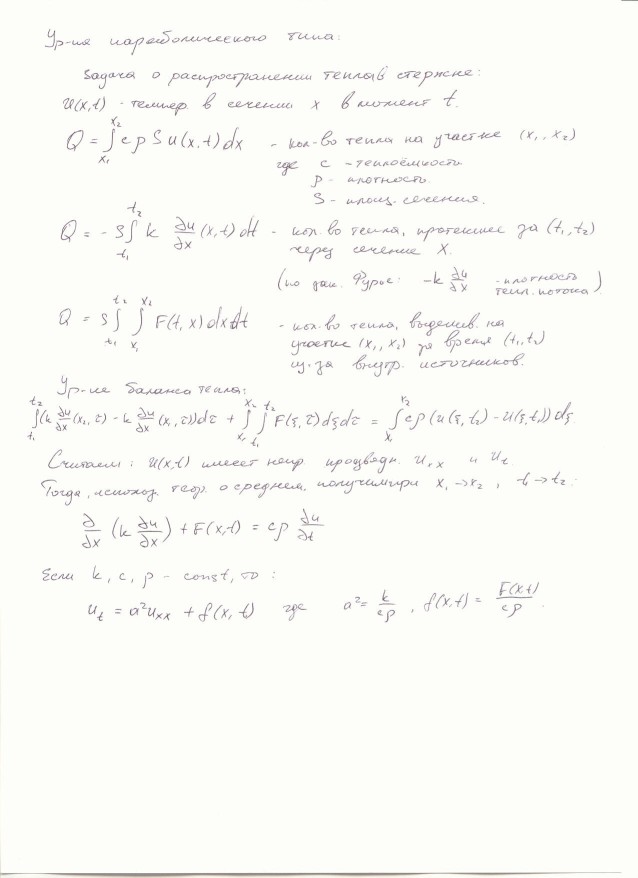 Ур-ия параболического типа:
Задача о распространении тепла в стержне:
U(x,t) - темпер. в сечении x в момент t.
Q = ∫_{x₁}^{x₂} cρSu(x,t)dx - кол-во тепла на участке (x₁, x₂)
где c - теплоёмкость
ρ - плотность
S - площ. сечения.
Q = - S∫_{t₁}^{t₂} k ∂u/∂x (x,t)dt - кол-во тепла, протекшее за (t₁, t₂)
через сечение x.
(по зак. Фурье: -k ∂u/∂x - плотность тепл. потока)
Q = S∫_{t₁}^{t₂} ∫_{x₁}^{x₂} F(t,x)dxdt - кол-во тепла, выделив. на
участке (x₁, x₂) за время (t₁,t₂)
из-за внутр. источников.
Ур-ие баланса тепла:
∫_{t₁}^{t₂}(k ∂u/∂x (x₂,τ) - k ∂u/∂x (x₁,τ))dτ + ∫_{x₁}^{x₂} ∫_{t₁}^{t₂} F(ξ,τ)dξdτ = ∫_{x₁}^{x₂} cρ(u(ξ,t₂) - u(ξ,t₁))dξ.
Считаем: U(x,t) имеет непр производн. U_{xx} и U_t
Тогда, использ. теор. о среднем, получим при x₁→x₂, t₁→t₂:
∂/∂x (k ∂u/∂x) + F(x,t) = cρ ∂u/∂t
Если k, c, ρ - const, то:
u_t = a²u_{xx} + f(x,t) где a² = k/cρ, f(x,t) = F(x,t)/cρ.